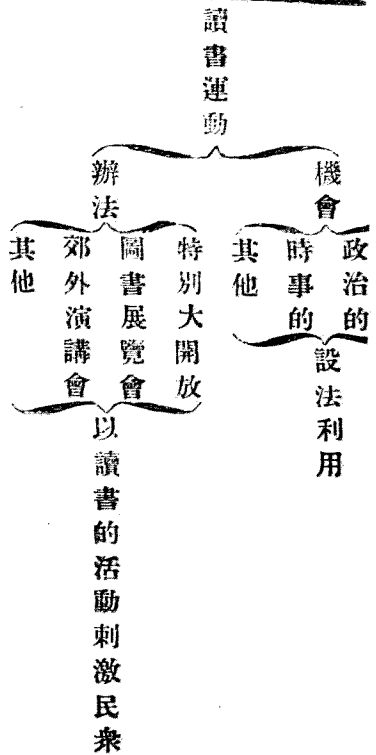 讀書運動
機會
政治的
時事的
其他
設法利用
辦法
特別大開放
圖書展覽會
郊外演講會
其他
以讀書的活動刺激民衆